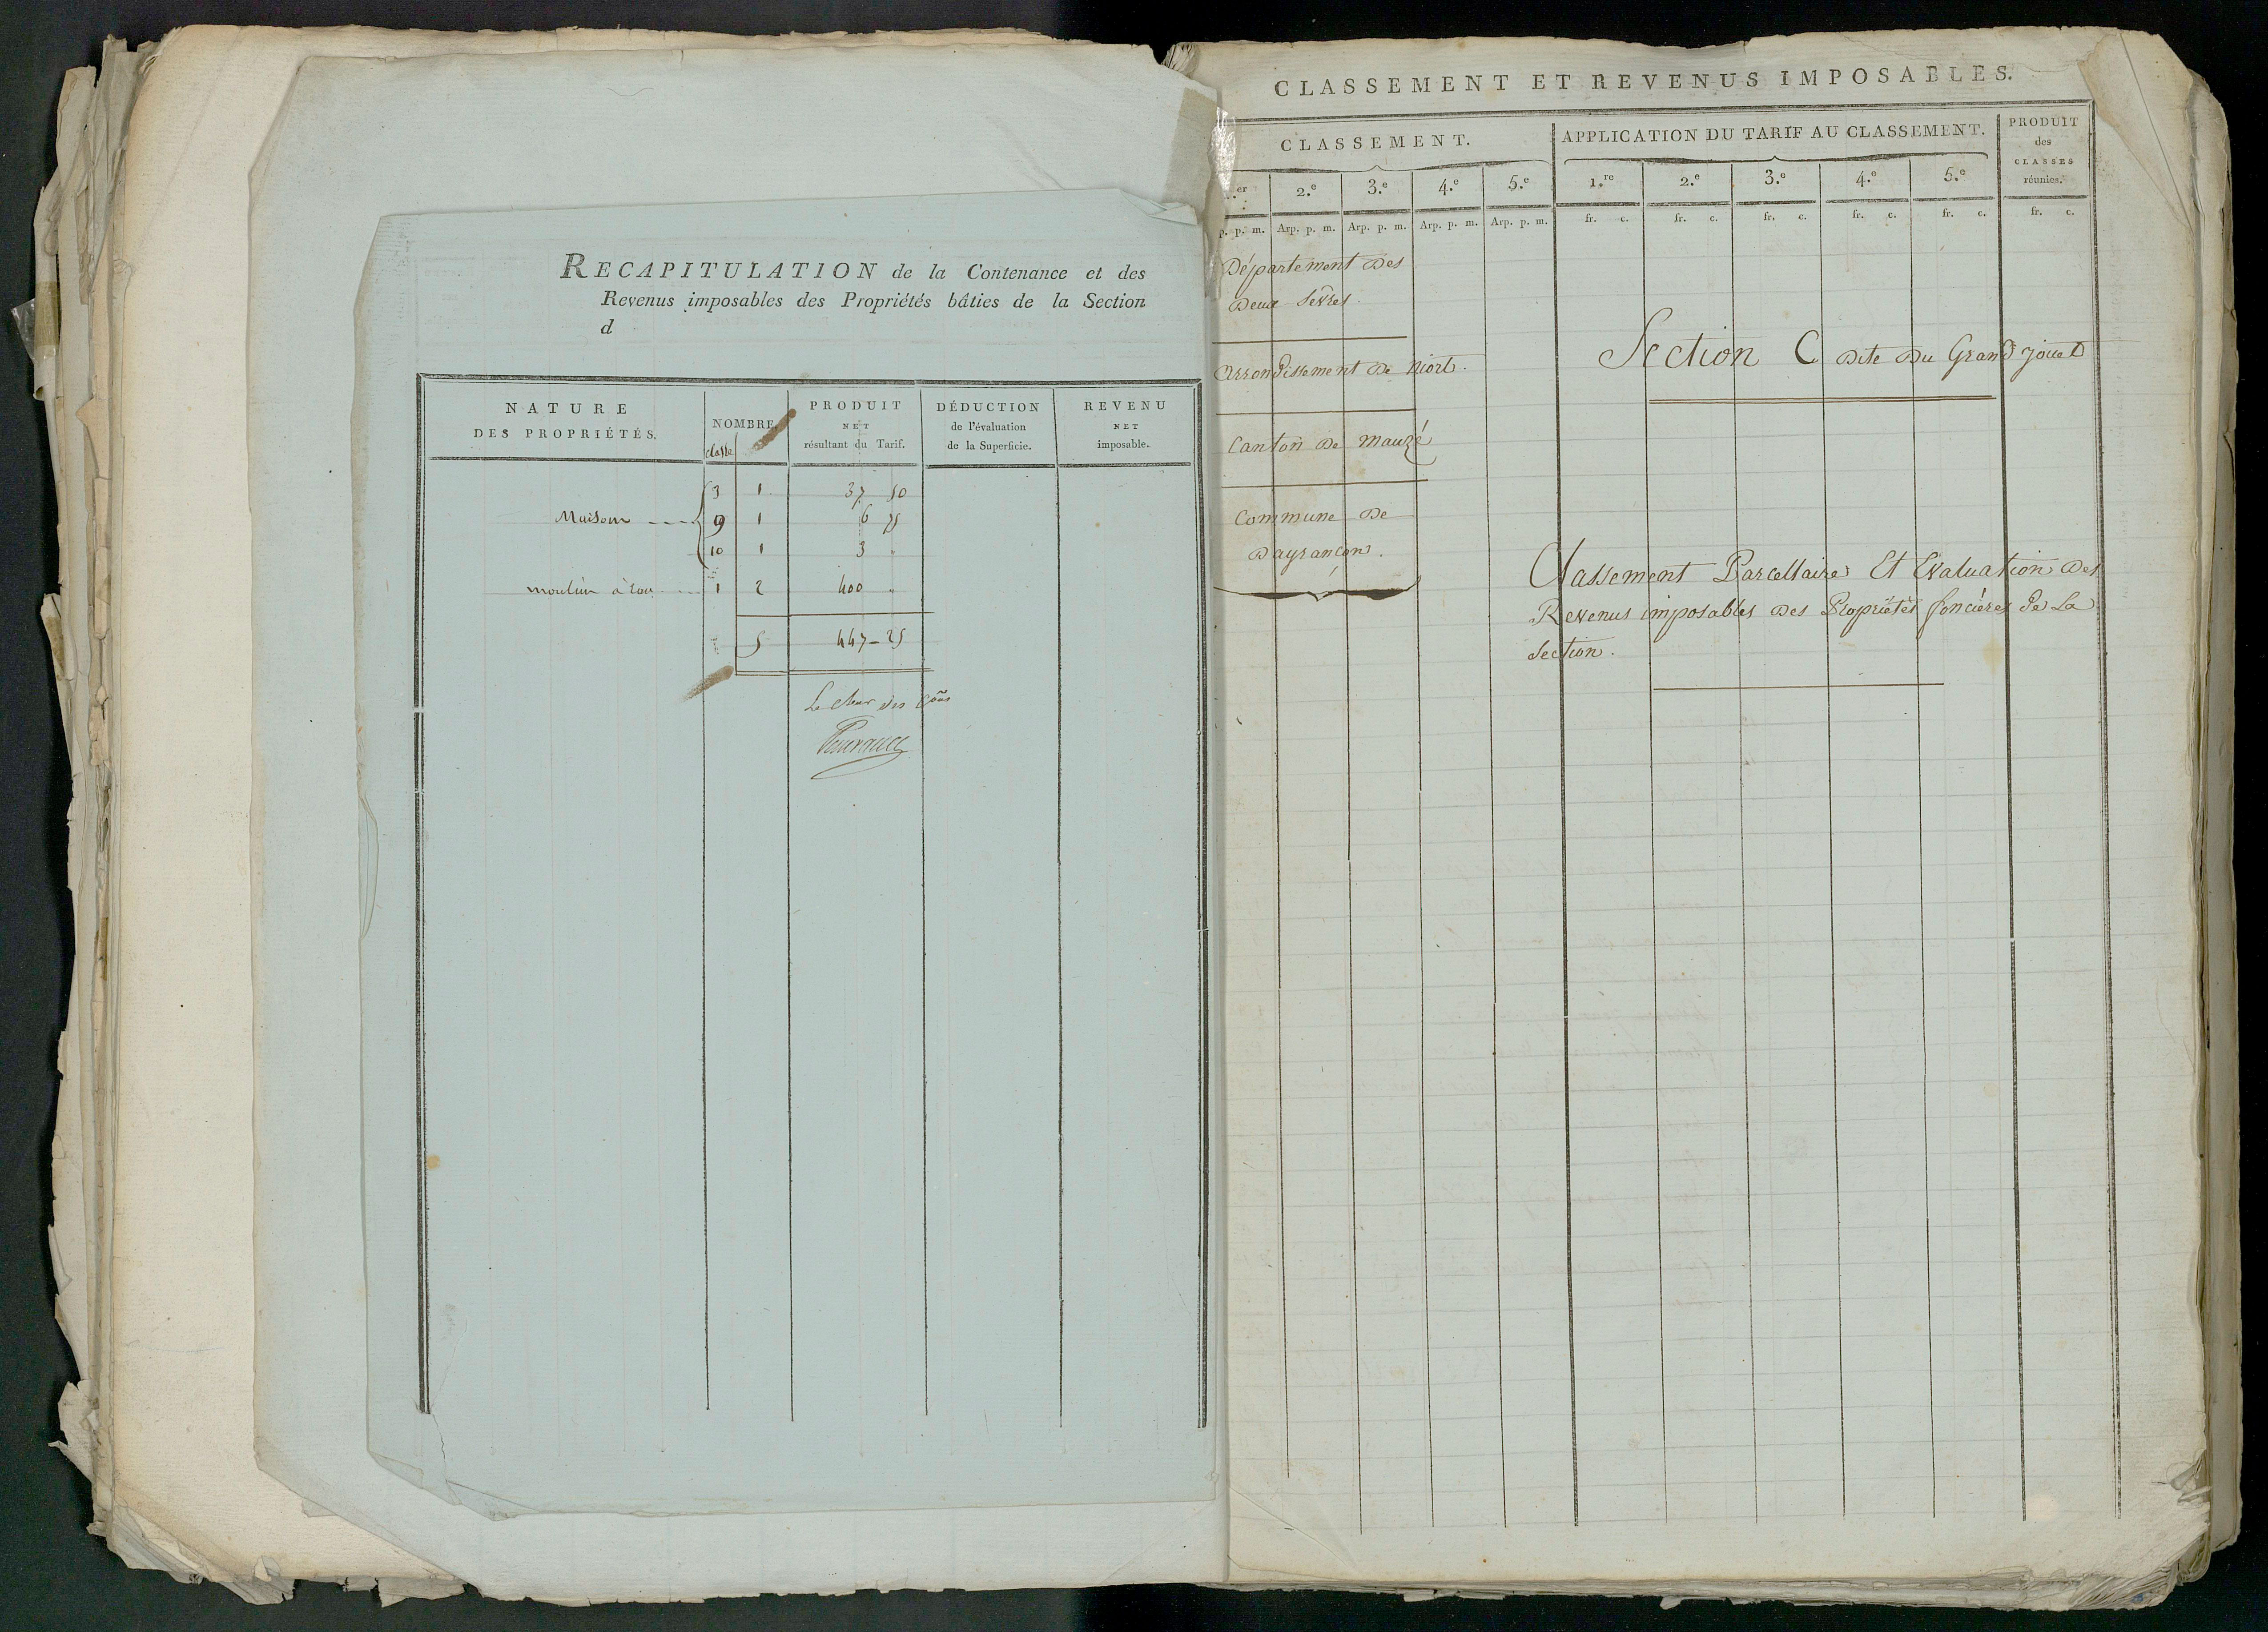 RECAPITULATION de la Contenance et des
Revenus imposables des Propriétés bâties de la Section
d
NATURE DES PROPRIÉTÉS. NOMBRE. PRODUIT NET résultant du Tarif. DÉDUCTION de l'évaluation de la Superficie. REVENU NET imposable.
classe
3 1 37 50
Maison 9 1 6 75
10 1 3 "
moulin à eau 1 2 400 "
5 447-25
Le des
CLASSEMENT ET REVENUS IMPOSABLES.
CLASSEMENT. APPLICATION DU TARIF AU CLASSEMENT. PRODUIT des CLASSES réunies.
er 2.e 3.e 4.e 5.e 1.re 2.e 3.e 4.e 5.e
p. p. m. Arp. p. m. Arp. p. m. Arp. p. m. Arp. p. m. fr. c. fr. c. fr. c. fr. c. fr. c. fr. c.
Département Des
Deux Sevres.
Arrondissement De Niort.
Canton De Mauzé
Commune De
Dayrançon.
Section C dite Du Grand Jouet
Classement Parcellaire Et Evaluation Des
Revenus imposables Des Propriétés foncières De La
Section.